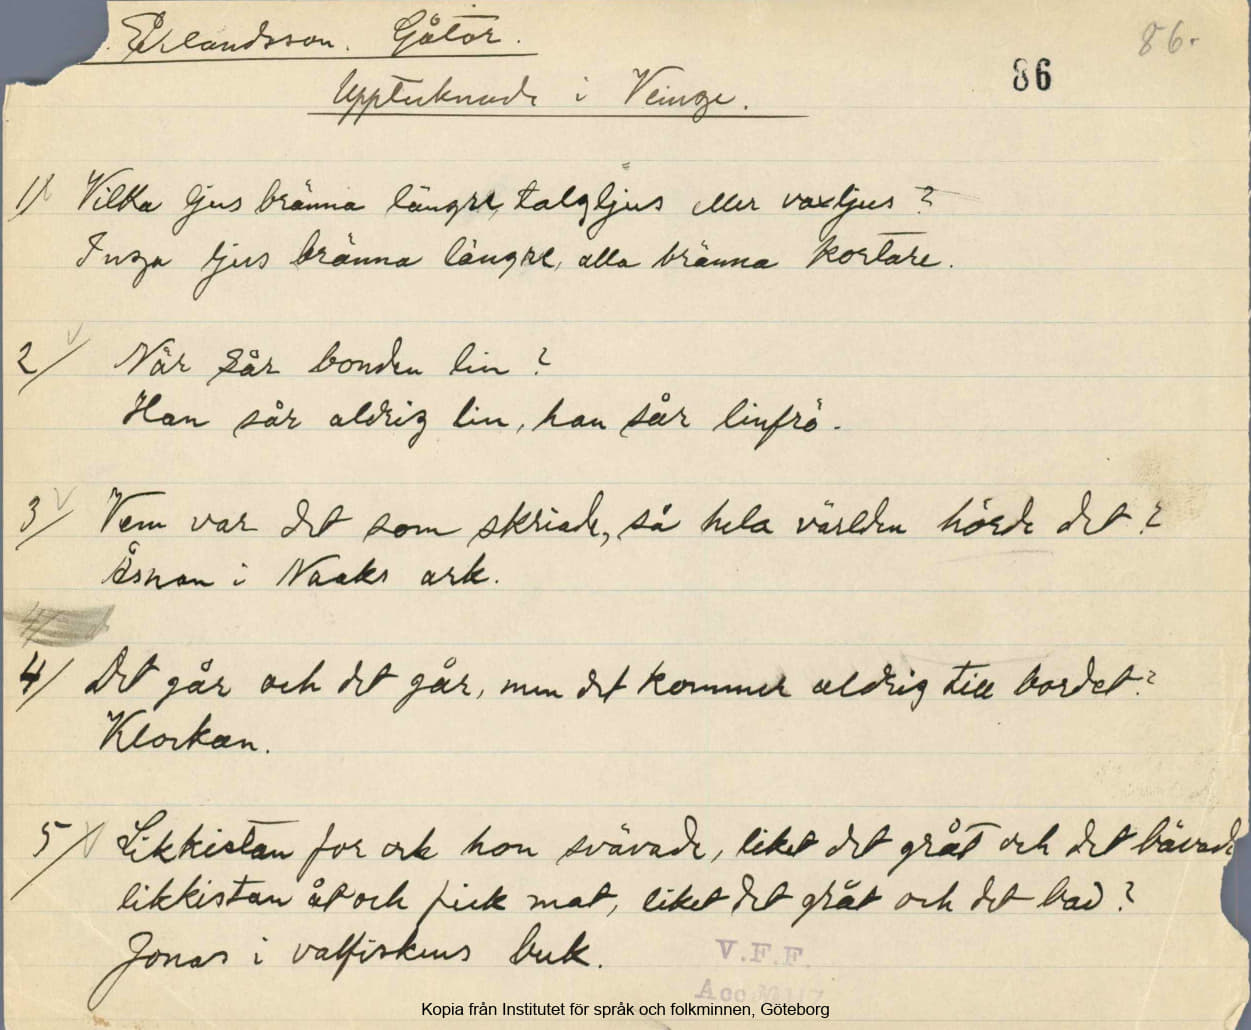 Erlandsson. Gåtor. 86.
86
Upptecknade i Veinge.
1/ Vilka ljus bränna längre, talgljus eller vaxljus?
Inga ljus bränna längre, alla bränna kortare.
2/ När sår bonden lin?
Han sår aldrig lin, han sår linfrö.
3/ Vem var det som skriade, så hela världen hörde det?
Åsnan i Noaks ark.
4/
4/ Det går och det går, men det kommer aldrig till bordet?
Klockan.
5/ Likkistan for och hon svävade, liket det gråt och det bävade
likkistan åt och fick mat, liket det gråt och det bad?
Jonas i valfiskens buk.
V.F.F.
Acc
Kopia från Institutet för språk och folkminnen, Göteborg